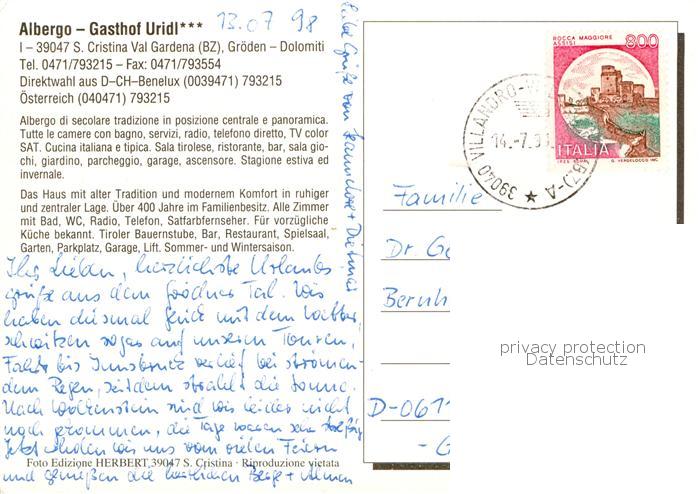 Albergo – Gasthof Uridl***
13.07 98
I – 39047 S. Cristina Val Gardena (BZ), Gröden – Dolomiti
Tel. 0471/793215 – Fax: 0471/793554
Direktwahl aus D–CH–Benelux (0039471) 793215
Österreich (040471) 793215
Albergo di secolare tradizione in posizione centrale e panoramica.
Tutte le camere con bagno, servizi, radio, telefono diretto, TV color
SAT. Cucina italiana e tipica. Sala tirolese, ristorante, bar, sala gio-
chi, giardino, parcheggio, garage, ascensore. Stagione estiva ed
invernale.
Das Haus mit alter Tradition und modernem Komfort in ruhiger
und zentraler Lage. Über 400 Jahre im Familienbesitz. Alle Zimmer
mit Bad, WC, Radio, Telefon, Satfarbfernseher. Für vorzügliche
Küche bekannt. Tiroler Bauernstube, Bar, Restaurant, Spielsaal,
Garten, Parkplatz, Garage, Lift. Sommer- und Wintersaison.
Ihr Lieben, herzlichste Urlaubs
grüße aus dem Grödner Tal. Wir
haben diesmal Glück mit dem Wetter,
schwitzen sogar auf unseren Touren,
Fahrt bis Innsbruck verlief bei strömen-
dem Regen, seitdem strahlt die Sonne.
Nach Wolkenstein sind wir leider nicht
noch gekommen, die Tage waren sehr
Jetzt erholen wir uns vom vielen Feiern
und genießen die herrlichen Berge + Almen
Liebe Grüße von Hannelore + Dietmar
Foto Edizione HERBERT, 39047 S. Cristina · Riproduzione vietata
ROCCA MAGGIORE
ASSISI
800
ITALIA
39040 VILLANDRO
(BZ)-A
14.-7.9
Familie
Dr. Ge
Bernh
D-061
- G
privacy protection
Datenschutz